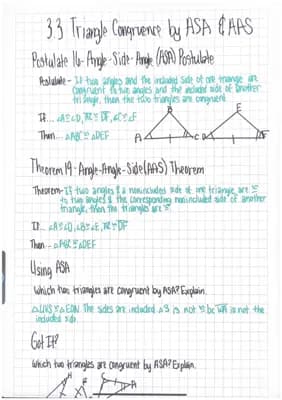 3.3 Triangle Congruence by ASA & AAS
Postulate 16 - Angle-Side-Angle (ASA) Postulate
Postulate - If two angles and the included side of one triangle are
congruent to two angles and the included side of another
triangle, then the two triangles are congruent.
If... ∠A≅∠D, AC≅DF, ∠C≅∠F
Then... △ABC≅△DEF
B
A
C
E
D
F
Theorem 19 - Angle-Angle-Side (AAS) Theorem
Theorem - If two angles & a nonincluded side of one triangle are ≅
to two angles & the corresponding nonincluded side of another
triangle, then the triangles are ≅.
If... ∠A≅∠D, ∠B≅∠E, AC≅DF
Then... △ABC≅△DEF
Using ASA
Which two triangles are congruent by ASA? Explain.
The sides are included. △3 is not ≅ bc is not the
included side.
Got It?
Which two triangles are congruent by ASA? Explain.